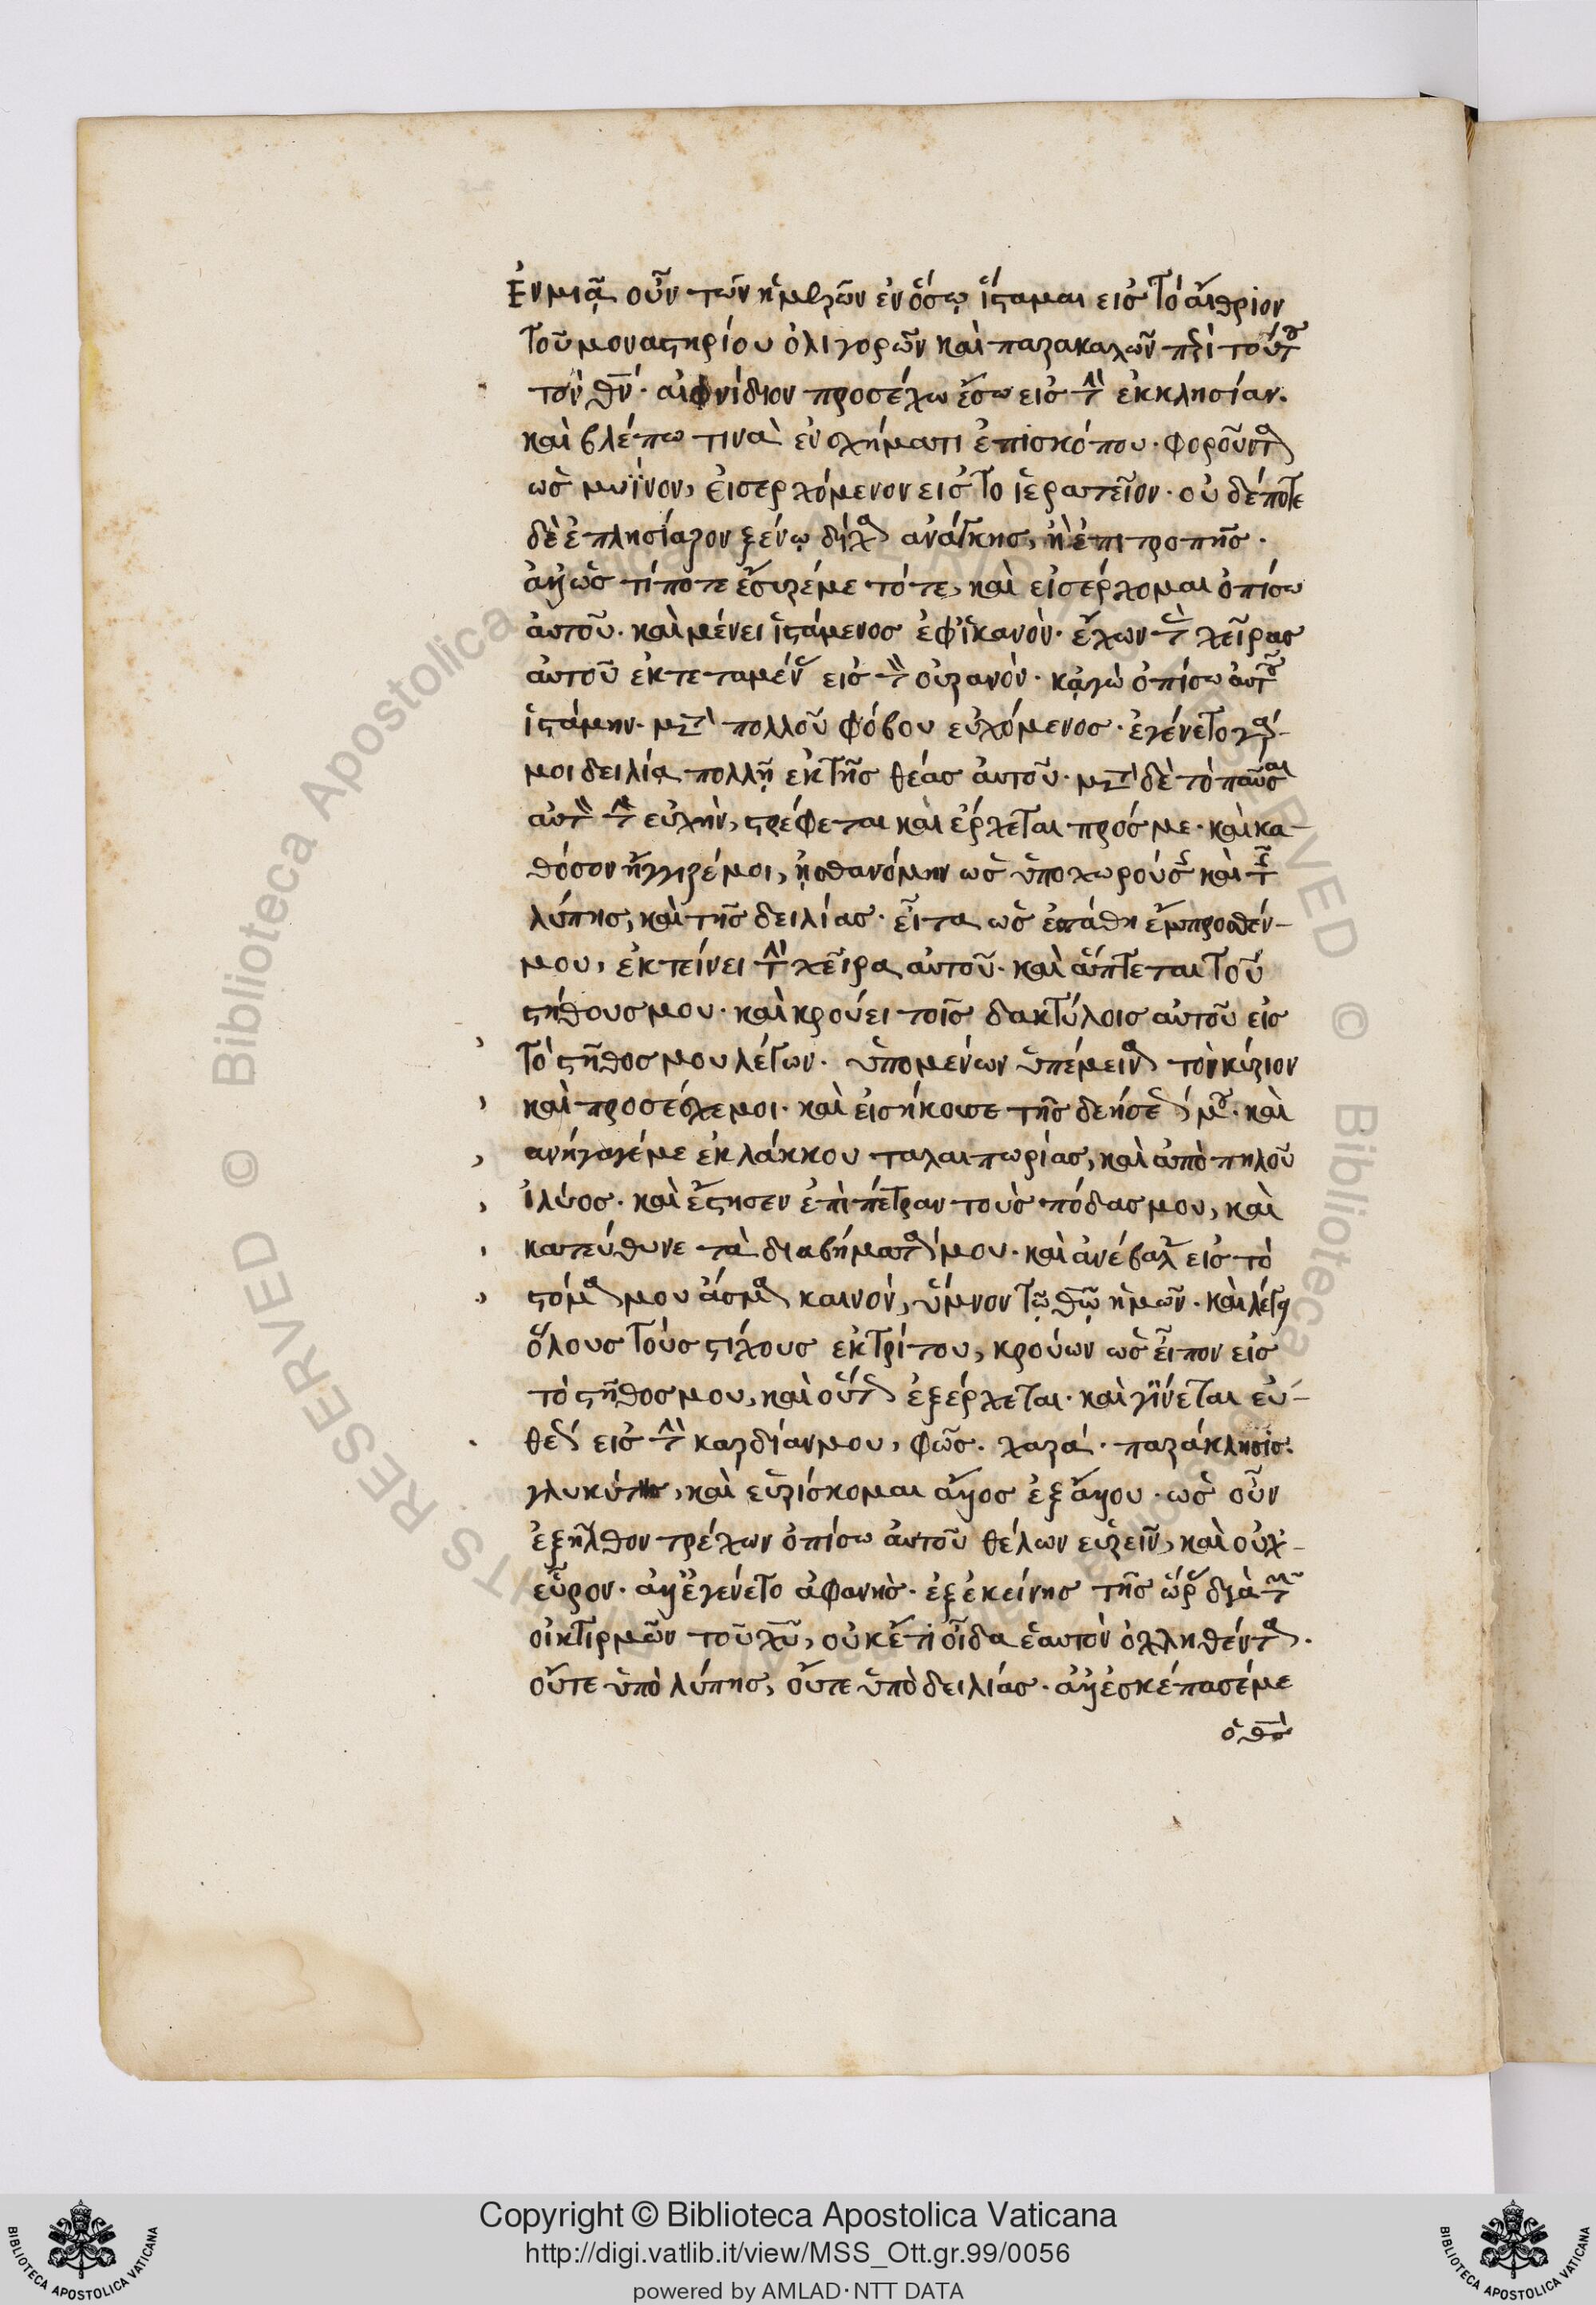 Ἐν μιᾷ οὖν τῶν ἡμερῶν ἐν ὅσῳ ἵσταμαι εἰς τὸ αἴθριον
τοῦ μοναστηρίου ὀλιγορῶν καὶ παρακαλῶν περὶ τούτου
τὸν θν̅· αἰφνίδιον προσέχω ἔσω εἰς τὴν ἐκκλησίαν·
καὶ βλέπω τινὰ ἐν σχήματι ἐπισκόπου· φοροῦντα
ὡς μωϊνον, εἰσερχόμενον εἰς τὸ ἱερατεῖον· οὐδέποτε
δὲ ἐπλησίαζον ξένῳ δίχα ἀνάγκης, ἢ ἐπιτροπῆς·
ἀλλ' ὡς τίποτε ἔσυρέ με τότε, καὶ εἰσέρχομαι ὀπίσω
αὐτοῦ· καὶ μένει ἱστάμενος ἐφ' ἱκανόν· ἔχων τὰς χεῖρας
αὐτοῦ ἐκτεταμένας εἰς τὸν οὐρανόν· κἀγὼ ὀπίσω αὐτοῦ
ἱστάμην· μετὰ πολλοῦ φόβου εὐχόμενος· ἐγένετο γάρ
μοι δειλία πολλὴ ἐκ τῆς θέας αὐτοῦ· μετὰ δὲ τὸ παῦσαι
αὐτὸν τὴν εὐχήν, στρέφεται καὶ ἔρχεται πρός με· καὶ κα-
θόσον ἤγγιζέ μοι, ᾐσθανόμην ὡς ὑποχωρούσης καὶ τῆς
λύπης, καὶ τῆς δειλίας· εἶτα ὡς ἐστάθη ἔμπροσθέν
μου, ἐκτείνει τὴν χεῖρα αὐτοῦ· καὶ ἅπτεται τοῦ
στήθους μου· καὶ κρούει τοῖς δακτύλοις αὐτοῦ εἰς
τὸ στῆθος μου λέγων· ὑπομένων ὑπέμεινα τὸν κύριον
καὶ προσέσχε μοι· καὶ εἰσήκουσε τῆς δεήσεώς μου· καὶ
ἀνήγαγέ με ἐκ λάκκου ταλαιπωρίας, καὶ ἀπὸ πηλοῦ
ἰλύος· καὶ ἔστησεν ἐπὶ πέτραν τοὺς πόδας μου, καὶ
κατεύθυνε τὰ διαβήματά μου· καὶ ἀνέβαλεν εἰς τὸ
στόμα μου ἆσμα καινόν, ὕμνον τῷ θῶ̅ ἡμῶν· καὶ λέγει
ὅλους τοὺς στίχους ἐκ τρίτου, κρούων ὡς εἶπον εἰς
τὸ στῆθος μου, καὶ οὕτως ἐξέρχεται· καὶ γίνεται εὐ-
θέως εἰς τὴν καρδίαν μου, φῶς· χαρά· παράκλησις·
γλυκύτης, καὶ εὑρίσκομαι ἄλλος ἐξ ἄλλου· ὡς οὖν
ἐξῆλθον τρέχων ὀπίσω αὐτοῦ θέλων εὑρεῖν, καὶ οὐχ
εὗρον· ἀλλ' ἐγένετο ἀφανής· ἐξ ἐκείνης τῆς ὥρας διὰ τῶν
οἰκτιρμῶν τοῦ χῦ̅, οὐκέτι οἶδα ἑαυτὸν ὀχληθέντα·
οὔτε ὑπὸ λύπης, οὔτε ὑπὸ δειλίας· ἀλλ' ἐσκέπασέ με
ὁ θς̅
Copyright © Biblioteca Apostolica Vaticana
http://digi.vatlib.it/view/MSS_Ott.gr.99/0056
powered by AMLAD·NTT DATA
BIBLIOTECA APOSTOLICA VATICANA
BIBLIOTECA APOSTOLICA VATICANA